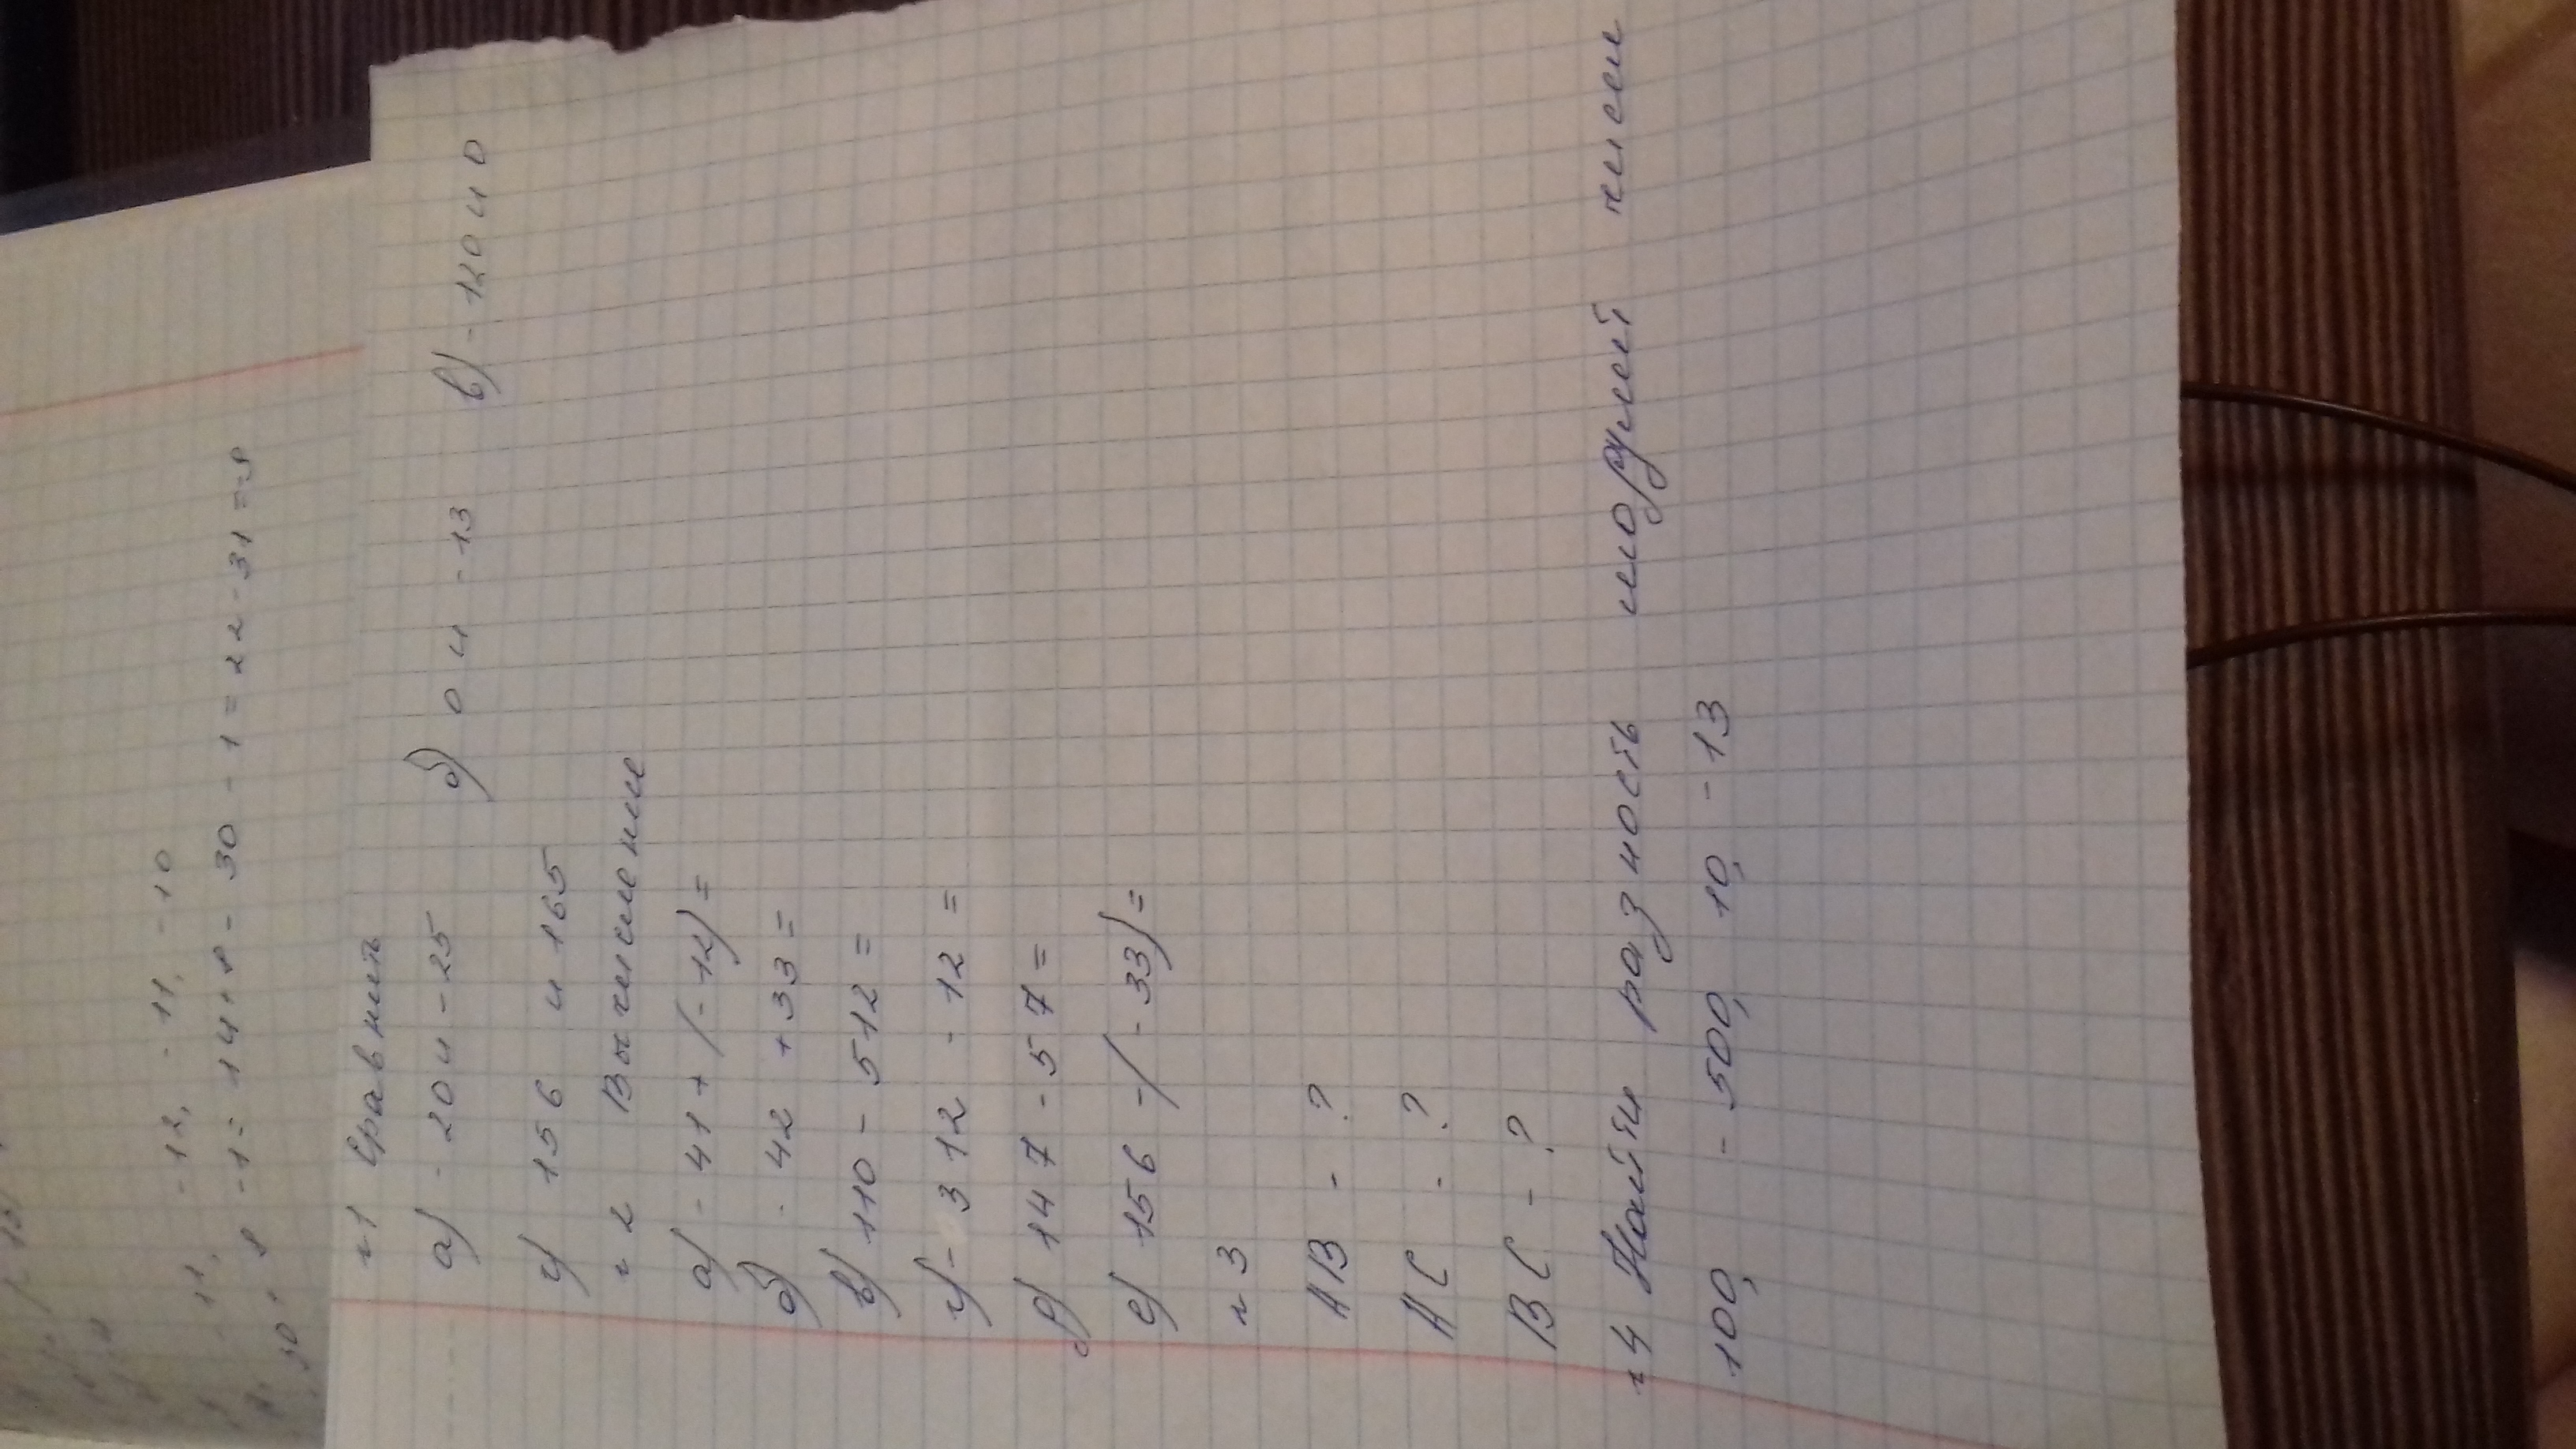 -11, -12, -11, -10
30, 8 - 1 = 14 + 8 - 30 - 1 = 22 - 31 = -9
№1 Сравнить
а) - 20 и - 25 б) 0 и - 13 в) - 120 и 0
г) 156 и 165
№2 Вычисление
а) - 41 + (- 12) =
б) - 42 + 33 =
в) 110 - 512 =
г) - 312 - 12 =
д) 147 - 57 =
е) 156 - (- 33) =
№3
АВ - ?
АС - ?
ВС - ?
№4 Найти разность модулей чисел
100, - 500, 10, - 13